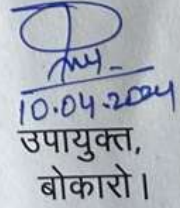 10.04.2024
उपायुक्त,
बोकारो।